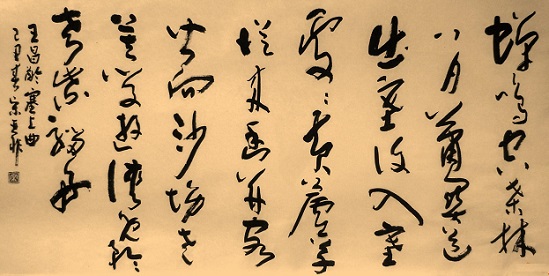 蟬鳴空桑林
八月蕭關道
出塞復入塞
處處黃蘆草
從來幽并客
皆向沙場老
莫學遊俠兒矜
夸紫騮好
王昌齡塞上曲